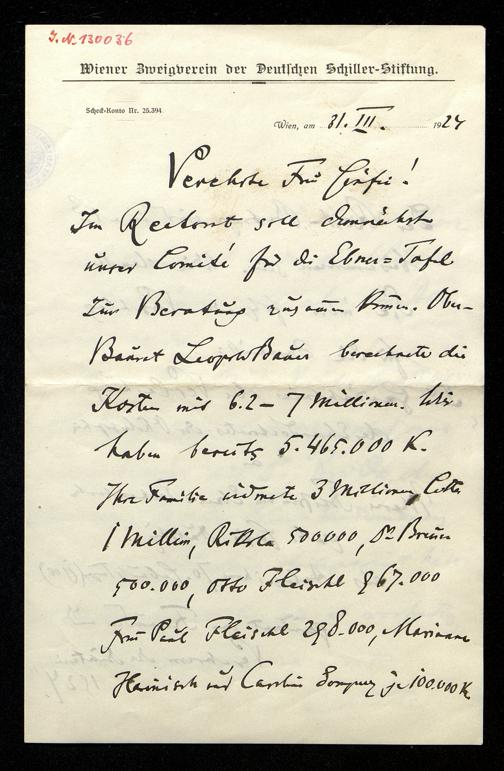 J. N. 130036
Wiener Zweigverein der Deutschen Schiller-Stiftung.
Scheck-Konto Nr. 25.394
Wien, am 31. III. 1924
Verehrte Frau Gräfin!
Im Rectorat soll demnächst
unser Comité für die Ebner-Tafel
zur Beratung zusammen kommen. Ober-
Baurat Leopold Bauer berechnete die
Kosten mit 6.2 – 7 Millionen. Wir
haben bereits 5.465.000 K.
Ihre Familie widmete 3 Millionen,
1 Million, 500000, Dr Breuer
500.000, Otto Fleischl 67.000
Frau Paul Fleischl 298.000, Marianne
Hainisch und Caroline Gomperz je 100.000 K.